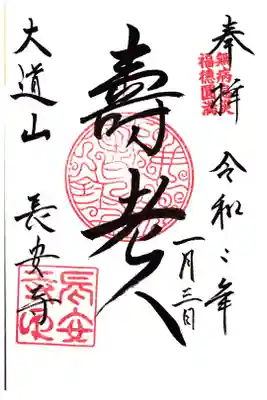 奉拝 令和二年
一月三日
無病息災
福徳圓満
壽老人
大道山 長安寺